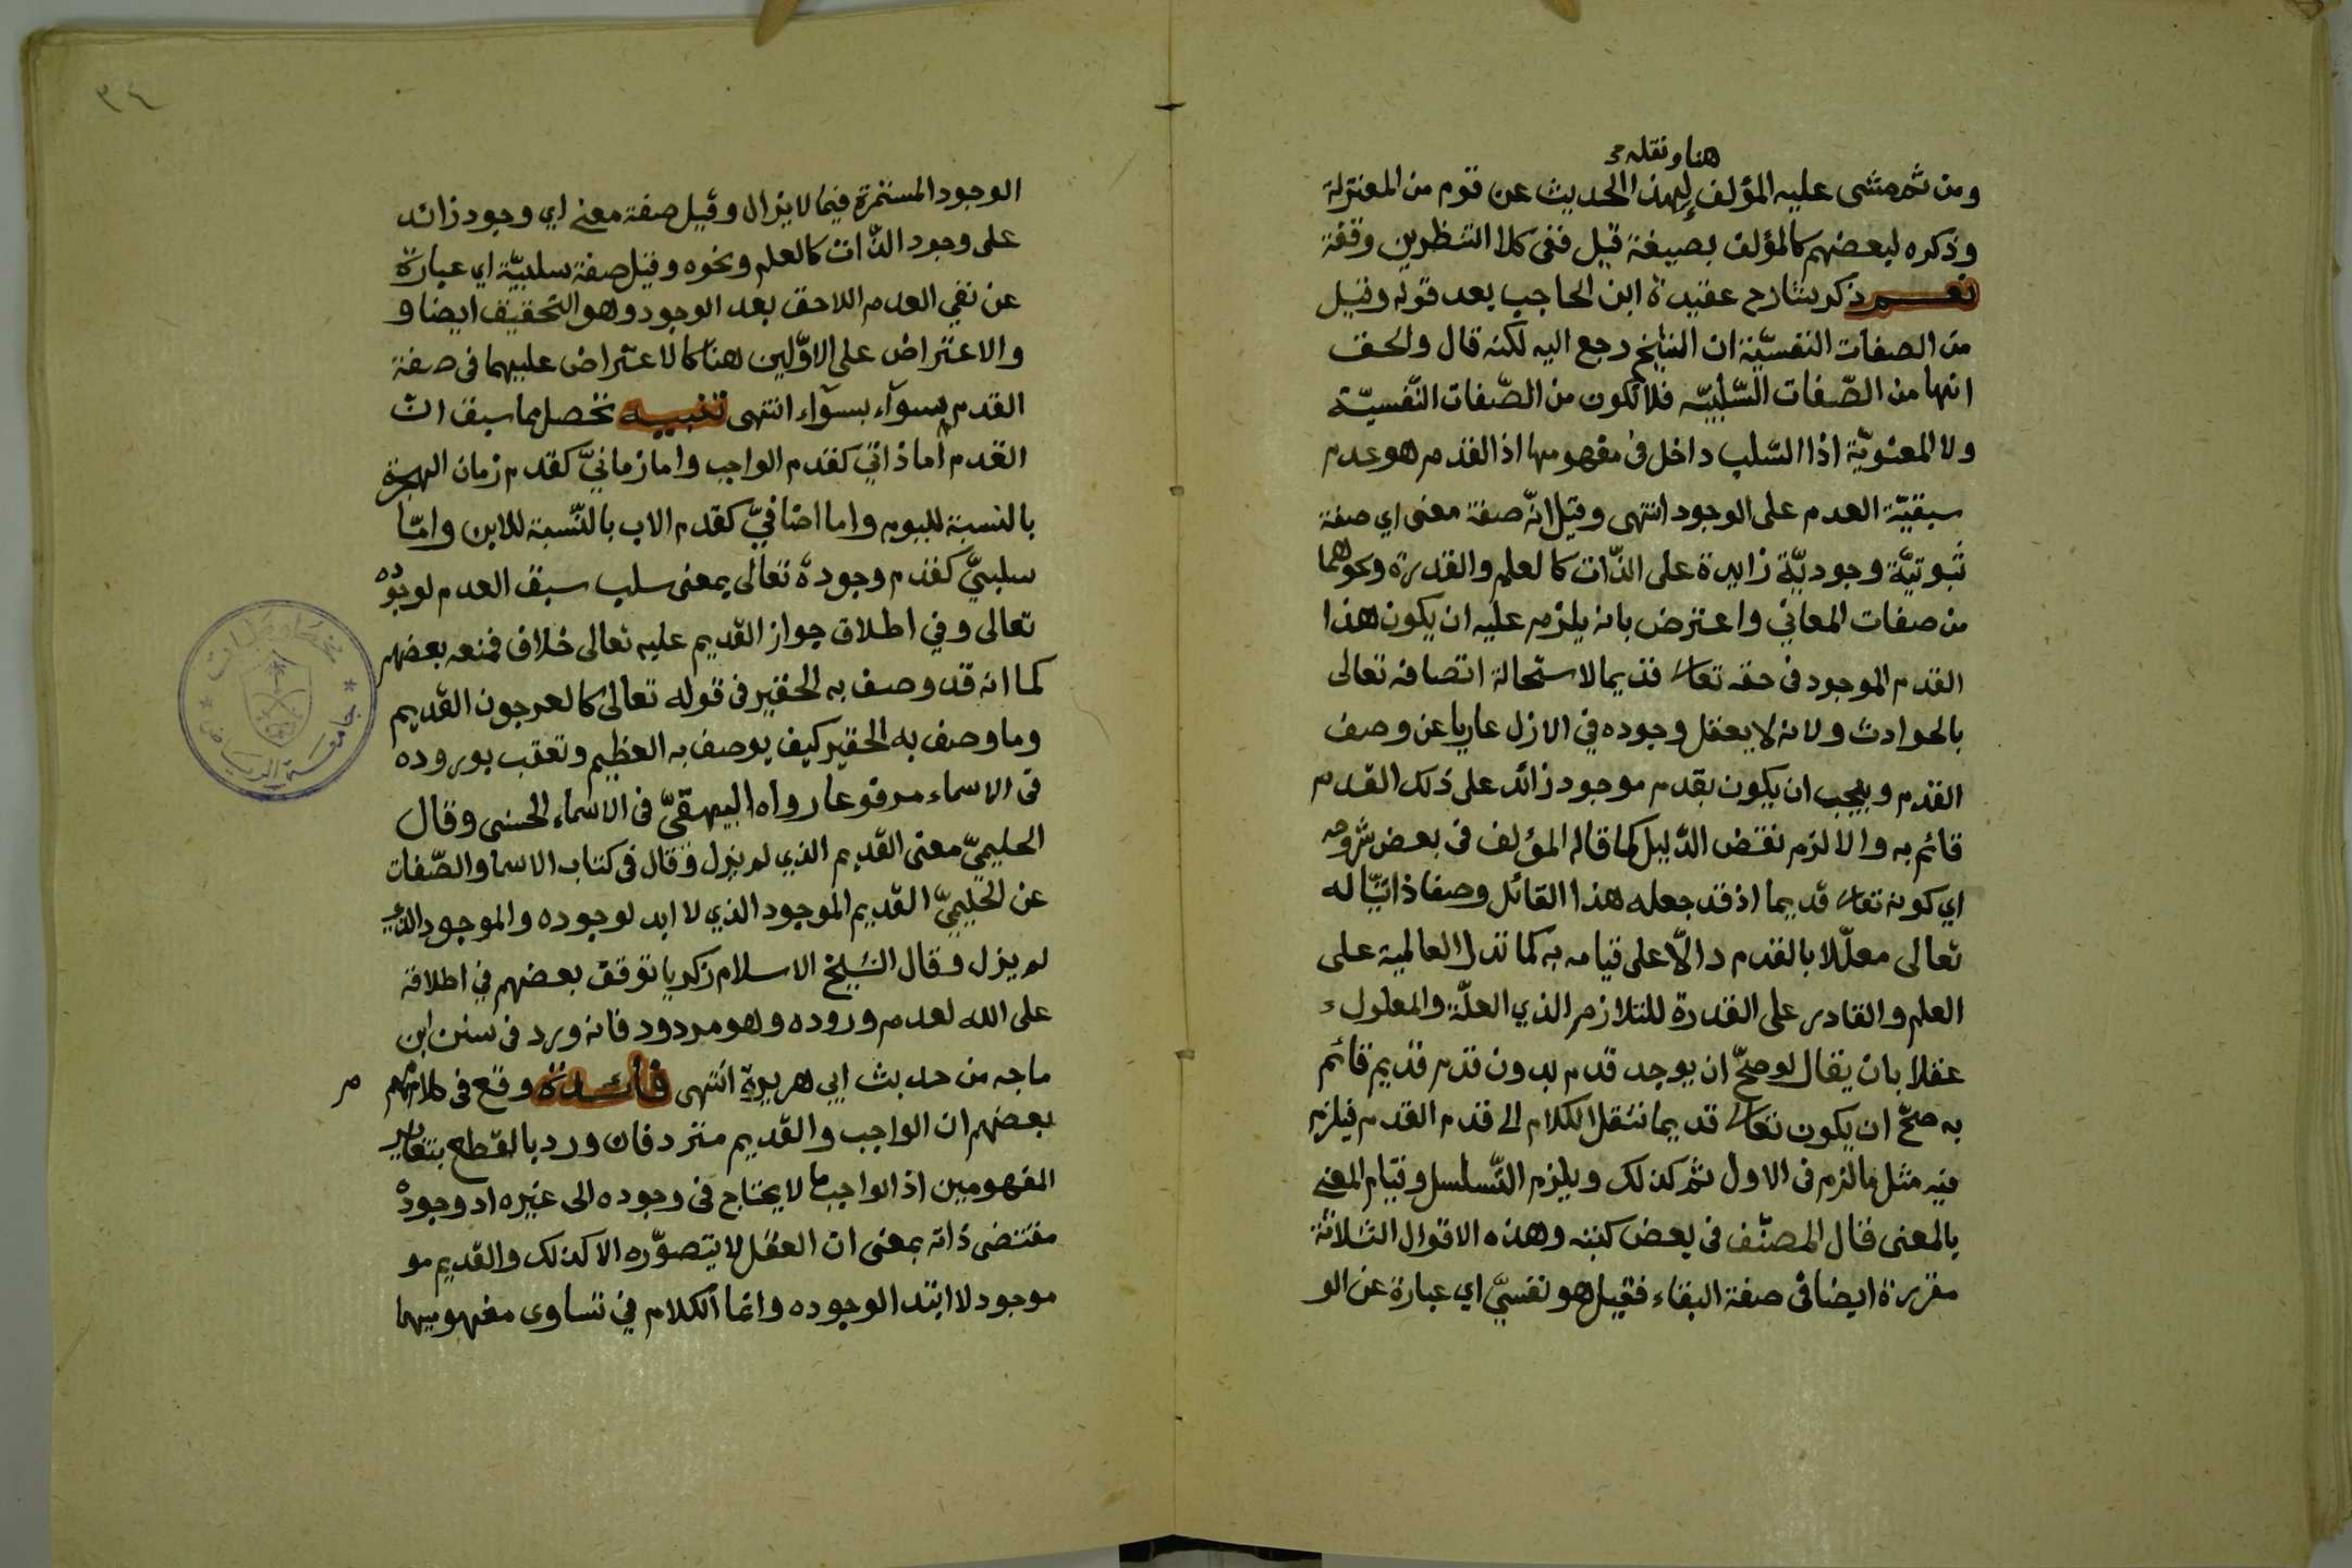 هنا ونقله
ومن ثم مشى عليه المؤلف لهذا الحديث عن قوم من المعتزلة
وذكره لبعضهم كالمؤلف بصيغة قيل ففى كلا النظرين وقفة
نعم ذكر شارح عقيدة ابن الحاجب بعد قوله وقيل
من الصفات النفسيّة ان الشيخ رجع اليه لكنه قال والحق
انها من الصّفات السّلبيّه فلا تكون من الصّفات النّفسيّة
ولا المعنويّة اذا السّلب داخل فى مفهومها اذ القدم هو عدم
سبقيّة العدم على الوجود انتهى وقيل انّه صفة معنى اي صفة
ثبوتيّة وجوديّة زايدة على الذّات كالعلم والقدرة ونحوهما
من صفات المعاني واعترض بانه يلزم عليه ان يكون هذا
القدم الموجود فى حقه تعالى قديما لاستحالة اتصافه تعالى
بالحوادث ولانه لا يعقل وجوده في الازل عاريا عن وصف
القدم ويجب ان يكون بقدم موجود زائد على ذلك القدم
قائم به والا لزم نقض الدّليل كما قاله المؤلف فى بعض شروحه
اي كونه تعالى قديما اذ قد جعله هذا القائل وصفا ذاتيّا له
تعالى معلّلا بالقدم دالّا على قيامه به كما تدل العالمية على
العلم والقادر على القدرة للتلازم الذي العلّة والمعلول
عقلا بان يقال لو صحّ ان يوجد قدم بدون قدم قديم قائم
به صحّ ان يكون تعالى قديما ننقل الكلام الى قدم القدم فيلزم
فيه مثل ما لزم فى الاول ثم كذلك ويلزم التّسلسل وقيام المعنى
بالمعنى قال المصنّف فى بعض كتبه وهذه الاقوال الثلاثة
مقررة ايضا فى صفة البقاء فقيل هو نفسيّ اي عبارة عن الو
٣٤
الوجود المستمرة فيما لا يزال وقيل صفة معنى اي وجود زائد
على وجود الذّات كالعلم ونحوه وقيل صفة سلبيّة اي عبارة
عن نفي العدم اللاحق بعد الوجود وهو التحقيق ايضا و
والاعتراض على الاوّلين هنا كالاعتراض عليهما فى صفة
القدم سوآء بسوآء انتهى تنبيه تحصل مما سبق انّ
القدم اما ذاتي كقدم الواجب واما زمانيّ كقدم زمان الهجرة
بالنسبة لليوم واما اضافيّ كقدم الاب بالنّسبة للابن وامّا
سلبيّ كقدم وجوده تعالى بمعنى سلب سبق العدم لوجوده
تعالى وفي اطلاق جواز القديم عليه تعالى خلاف فمنعه بعضهم
كما انه قد وصف به الحقير فى قوله تعالى كالعرجون القديم
وما وصف به الحقير كيف يوصف به العظيم وتعقب بوروده
فى الاسماء مرفوعا رواه البيهقيّ فى الاسماء الحسنى وقال
الحليميّ معنى القديم الذي لم يزل وقال فى كتاب الاسما والصّفات
عن الحليميّ القديم الموجود الذي لا ابد لوجوده والموجود الذي
لم يزل وقال الشيخ الاسلام زكريا توقف بعضهم في اطلاقه
على الله لعدم وروده وهو مردود فانه ورد فى سنن ابن
ماجه من حديث ابي هريرة انتهى فأئدة وقع فى كلامهم
م
بعضهم ان الواجب والقديم متردفان ورد بالقطع بتغاير
المفهومين اذ الواجب ما لا يحتاج فى وجوده الى غيره اذ وجوده
مقتضى ذاته بمعنى ان العقل لا يتصوّره الا كذلك والقديم مو
موجود لا ابتدا لوجوده وانما الكلام في تساوى مفهوميهما
جامعة الرياض